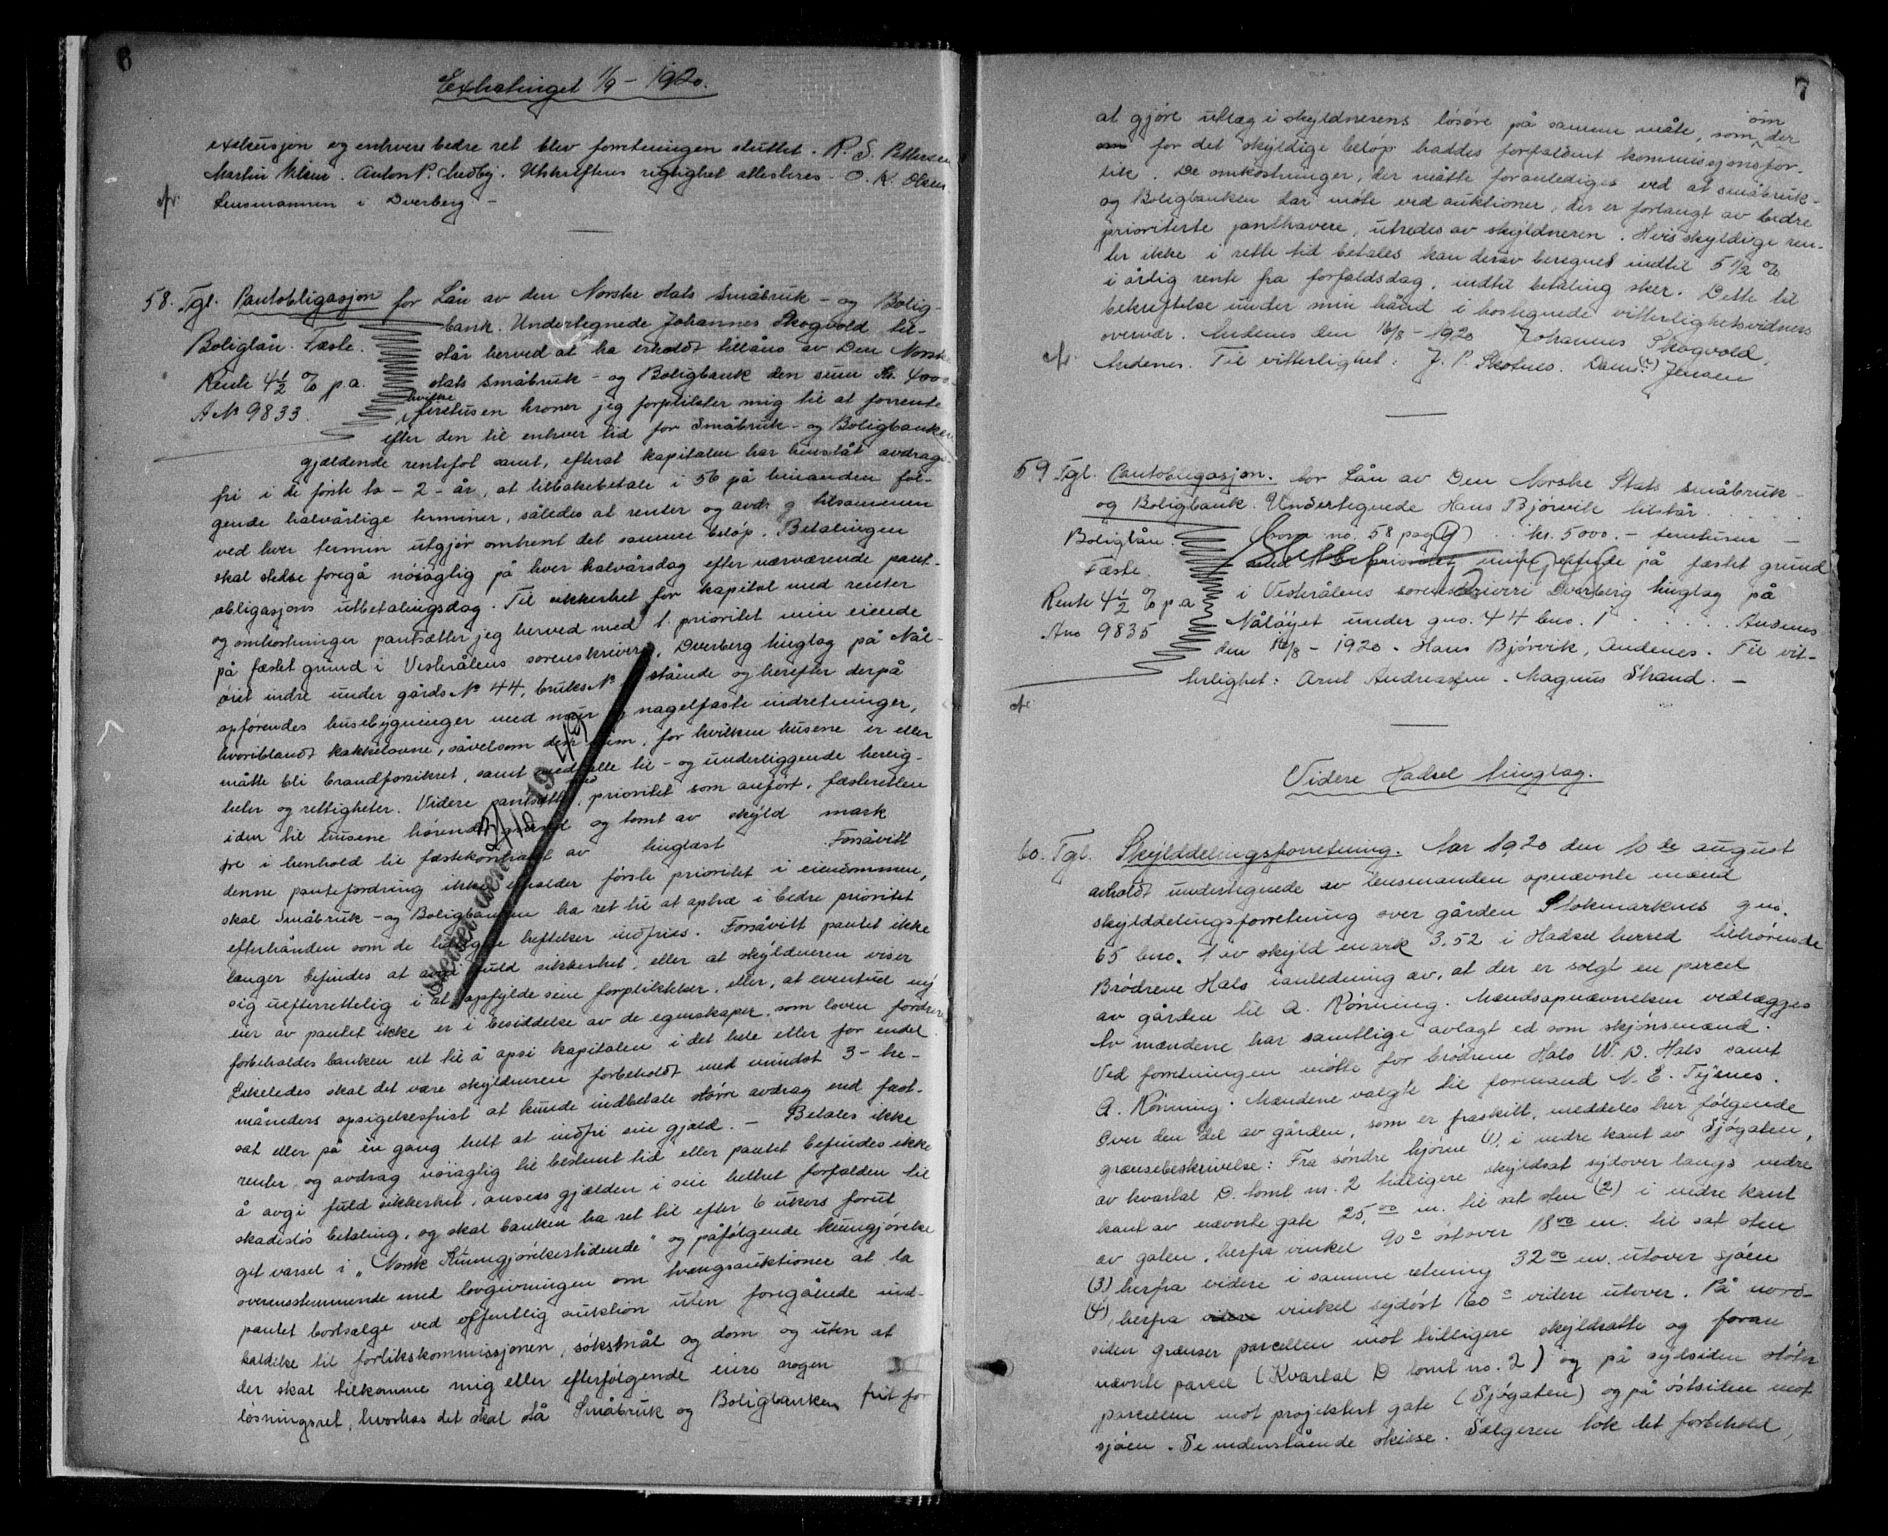 6
Extratinget 1/9 - 1920.
exekusjon og enhvers bedre ret blev forretningen sluttet. R. S. Pettersen
Martin Nilsen. Anton P. Medby. Utskriftens rigtighet attesteres - O. K. Olsen
Lensmannen i Dverberg -
58. Tgl. Pantobligasjon for Lån av den Norske stats Småbruk - og Bolig-
bank. Undertegnede Johannes Skogvold til-
Boliglån. Fæste.
står herved at ha erholdt tillåns av Den Norske
Rente 4½ % p.a.
stats småbruk - og Boligbank den sum kr. 4000.
A № 9833.
firetusen kroner hvilke jeg forplikter mig til at forrente
efter den til enhver tid for Småbruk - og Boligbanken
gjældende rentefot samt, efterat kapitalen har henståt avdrags-
fri i de første to - 2 - år, at tilbakebetale i 56 på hinanden føl-
gende halvårlige terminer, således at renter og avdrag tilsammen
ved hver termin utgjør omtrent det samme beløp. Betalingen
skal stedse foregå nøiaglig på hver halvårsdag efter nærværende pant-
obligasjons utbetalingsdag. Til sikkerhet for kapital med renter
og omkostninger pantsætter jeg herved med 1. prioritet min eiende
på fæstet grund i Vesterålens sorenskriveri, Dverberg tinglag på Nål-
øiet indre under gårds № 44, bruks № stående og herefter derpå
opførendes husebygninger med mur og nagelfaste indretninger,
hvoriblandt kakkelovne, såvelsom den sum, for hvilken husene er eller
måtte bli brandforsikret, samt med alle til - og underliggende herlig-
heter og rettigheter. Videre pantsættes, med prioritet som anført, fæsteretten
iden til husene hørende grund og tomt av skyld mark
øre i henhold til fæstekontrakt av tinglæst Forsåvitt
denne pantefordring ikke erholder første prioritet i eiendommen,
skal Småbruk - og Boligbanken ha ret til at optræ i bedre prioritet
efterhånden som de heftelser indfries. Forsåvitt pantet ikke
længer befindes at avgi fuld sikkerhet, eller at skyldneren viser
sig uefterrettelig i at opfylde sine forpliktelser, eller, at eventuel ny
eier av pantet ikke er i besiddelse av de egenskaper, som loven fordrer
forbeholdes banken ret til å opsi kapitalen i det hele eller for endel.
Likeledes skal det være skyldneren forbeholdt med mindst 3 - tre -
måneders opsigelsesfrist at kunde indbetale større avdrag end fast-
sat eller på én gang helt at indfri sin gjæld. - Betales ikke
renter og avdrag nøiaglig til bestemt tid eller pantet befindes ikke
å avgi fuld sikkerhet, ansees gjælden i sin helhet forfalden til
skadesløs betaling, og skal banken ha ret til efter 6 ukers forut
get varsel i „Norsk Kunngjørelsestidende“ og påfølgende kungjørelse
overensstemmende med lovgivningen om tvangsauktioner at la
pantet bortsælge ved offentlig auktion uten foregående ind-
kaldelse til forlikskommissjonen, søksmål og dom og uten at
der skal tilkomme mig eller efterfølgende eiere nogen
løsningsret, hvorhos det skal stå Småbruk og Boligbanken frit for
7
at gjøre utlæg i skyldnerens løsøre på samme måte, som om der
for det skyldige beløp haddes forfaldent kommissjonsfor-
lik. De omkostninger, der måtte foranlediges ved at småbruk-
og Boligbanken lar møte ved auktioner, der er forlangt av bedre
prioriterte panthavere, utredes av skyldneren. Hvis skyldige ren-
ter ikke i rette tid betales kan derav beregnes indtil 5 1/2 %
i årlig rente fra forfaldsdag, indtil betaling sker. Dette til
bekræftelse under min hånd i hostegnede vitterlighetsvidners
overvær. Andenes den 16/8 - 1920 Johannes Skogvold,
Andenes. Til vitterlighet: J. P. Skotnes. Dami(?) Jensen
59 Tgl. Pantobligasjon. for Lån av Den Norske Stats småbruk -
og Boligbank. Undertegnede Hans Bjørvik tilstår . . . .
Boliglån.
(hvorav no. 58 pag. 6) . . kr. 5000. - femtusen -
Fæste.
med 1 prioritet min eiende på fæstet grund
Rente 4½ % p.a.
i Vesterålens sorenskriveri Dverberg tinglag på
A no 9835
Nåløyet under gns. 44 bno. 1 . . . . . Andenes
den 16/8 - 1920. Hans Bjørvik, Andenes. Til vit-
terlighet: Arnt Andreassen. Magnus Strand. -
Videre Hadsel tinglag.
60. Tgl. Skylddelingsforretning. Aar 1920 den 10de august
avholdt undertegnede av lensmanden opnævnte mænd
skylddelingsforretning over gården Stokmarknes gns.
65 bno. 1 av skyld mark 3,52 i Hadsel herred tilhørende
Brødrene Hals i anledning av, at der er solgt en parcel
av gården til A. Rønning. Mændsopnævnelsen vedlægges
Av mændene har samtlige avlagt ed som skjønsmænd.
Ved forretningen møtte for brødrene Hals W. D. Hals samt
A. Rønning. Mændene valgte til formand N. E. Tejsnes.
Over den del av gården, som er fraskilt, meddeles her følgende
grænsebeskrivelse: Fra søndre hjørne (1), i nedre kant av Sjøgaten,
av kvartal D. tomt nr. 2 tidligere skyldsat sydover langs nedre
kant av nævnte gate 25,00 m. til sat sten (2) i nedre kant
av gaten, herfra vinkel 90° østover 18 00 m. til sat sten
(3) herfra videre i samme retning 32 00 m. utover sjøen
(4), herfra vinkel sydøst 160° videre utover. På nord-
siden grænser parcellen mot tidligere skyldsatte og foran
nævnte parcel (Kvartal D tomt no. 2) og på sydsiden støter
parcellen mot projektert gate (Sjøgaten) og på østsiden mot
sjøen. Se nedenstående skisse. Sælgeren tok det forbehold,